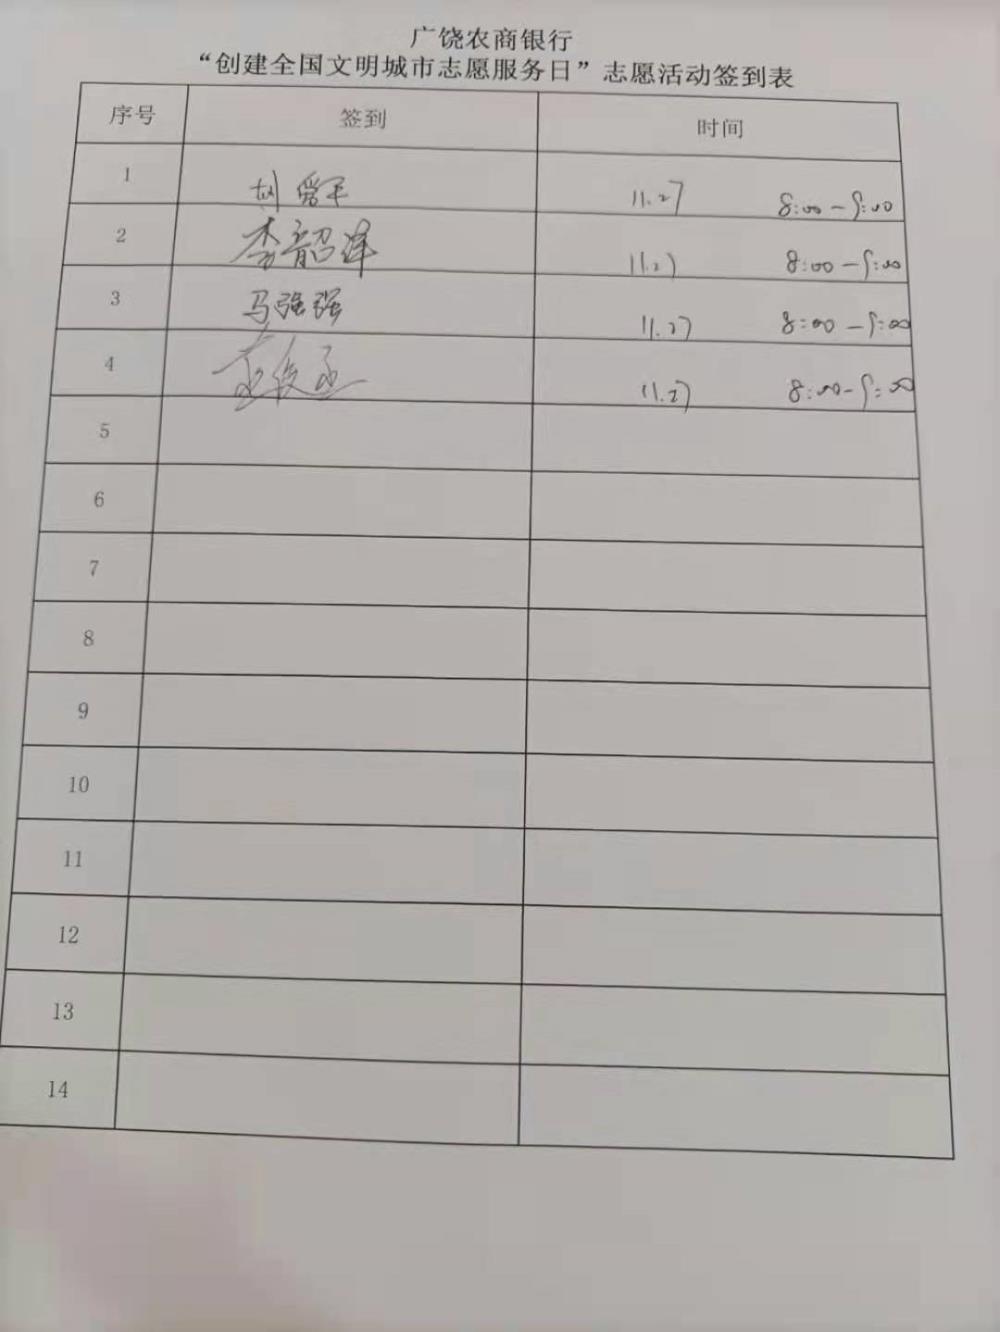 广饶农商银行
“创建全国文明城市志愿服务日”志愿活动签到表
序号 签到 时间
1 11.27 8:00-9:00
2 李韶泽 11.27 8:00-9:00
3 马强强 11.27 8:00-9:00
4 11.27 8:00-9:00
5
6
7
8
9
10
11
12
13
14